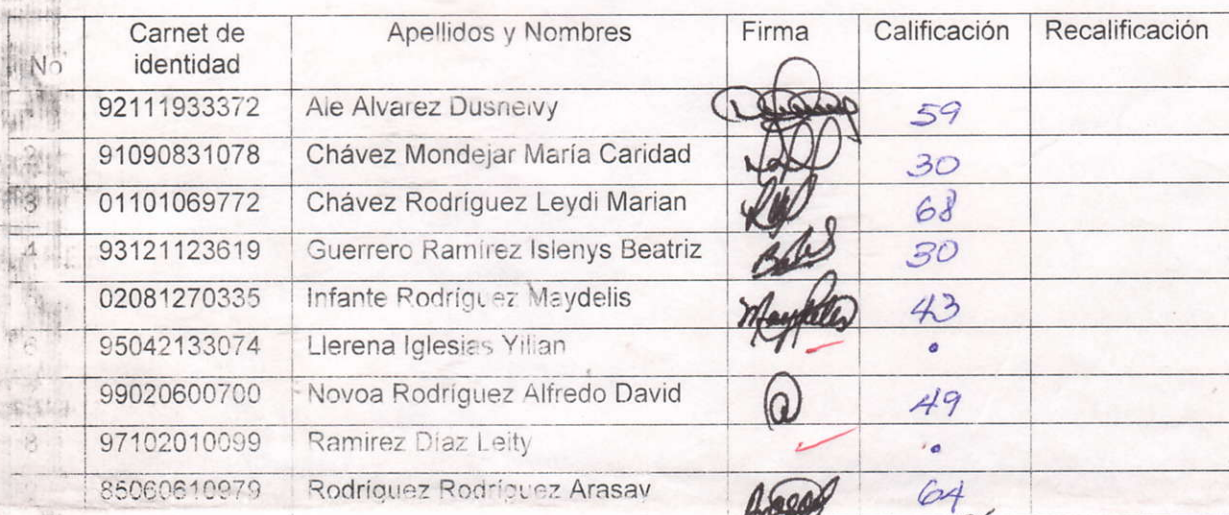 No Carnet de identidad Apellidos y Nombres Firma Calificación Recalificación
92111933372 Ale Alvarez Dusneivy 59
2 91090831078 Chávez Mondejar María Caridad 30
3 01101069772 Chávez Rodríguez Leydi Marian 68
4 93121123619 Guerrero Ramírez Islenys Beatriz 30
02081270335 Infante Rodríguez Maydelis 43
6 95042133074 Llerena Iglesias Yilian
99020600700 Novoa Rodríguez Alfredo David 49
8 97102010099 Ramirez Díaz Leity
85060610979 Rodríguez Rodríguez Arasay 64